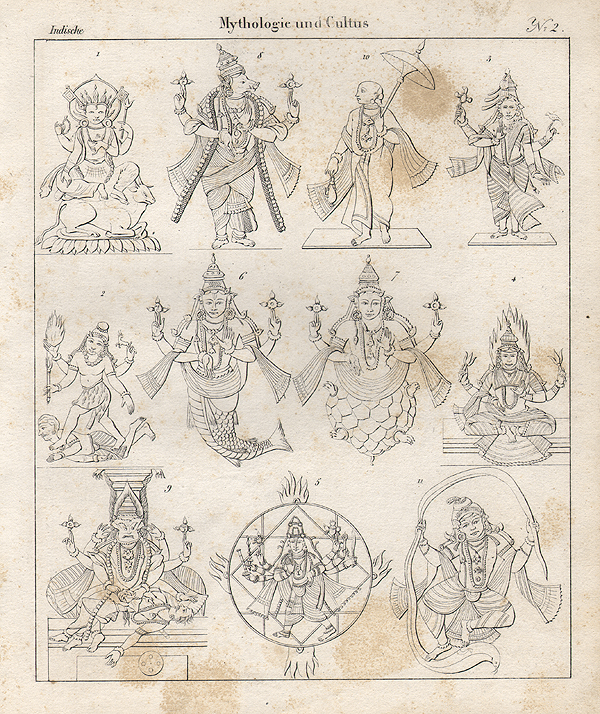 Indische
Mythologie und Cultus
Nr. 2.
1
8
10
3
2
6
7
4
9
5
11